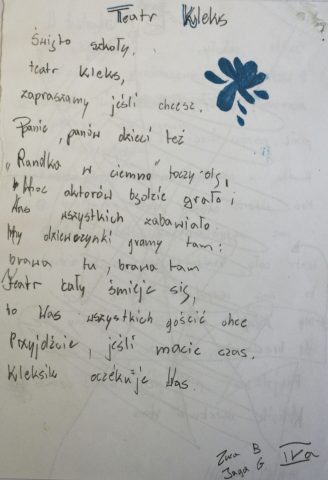 Teatr Kleks
Święto szkoły,
teatr Kleks,
zapraszamy jeśli chcesz.
Panie, panów dzieci też
"Randka w ciemno" toczy się,
Moc aktorów będzie grało i
Was wszystkich zabawiało
My dziewczynki gramy tam:
brawa tu, brawa tam
Teatr cały śmieje się,
to Was wszystkich gościć chce
Przyjdźcie, jeśli macie czas.
Kleksik oczekuje Was.
Ewa B
Jaga G
IVa